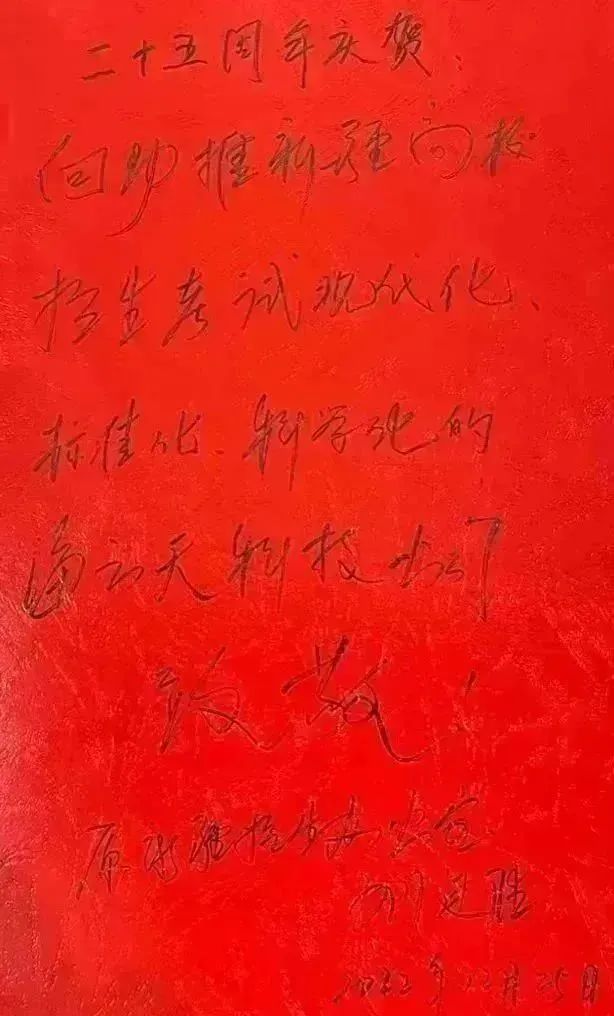 二十五周年庆贺:
向助推新疆高校
招生考试现代化、
标准化、科学化的
海云天科技公司
致敬!
原新疆招生办主任
刘建胜
2022年12月25日